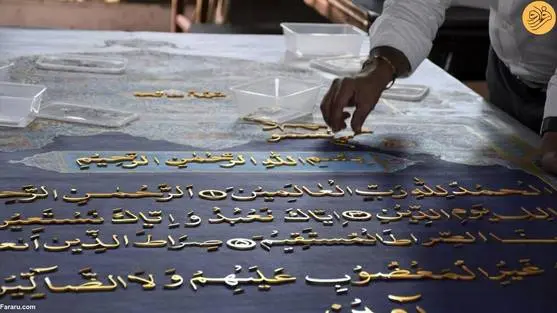 فرارو
بسم الله الرحمن الرحيم
الحمد لله رب العالمين الرحمن الرحـ
يوم الدين إياك نعبد و إياك نستعين
الصراط المستقيم صراط الذين أنعـ
غير المغضوب عليهم ولا الضالين
Fararu.com